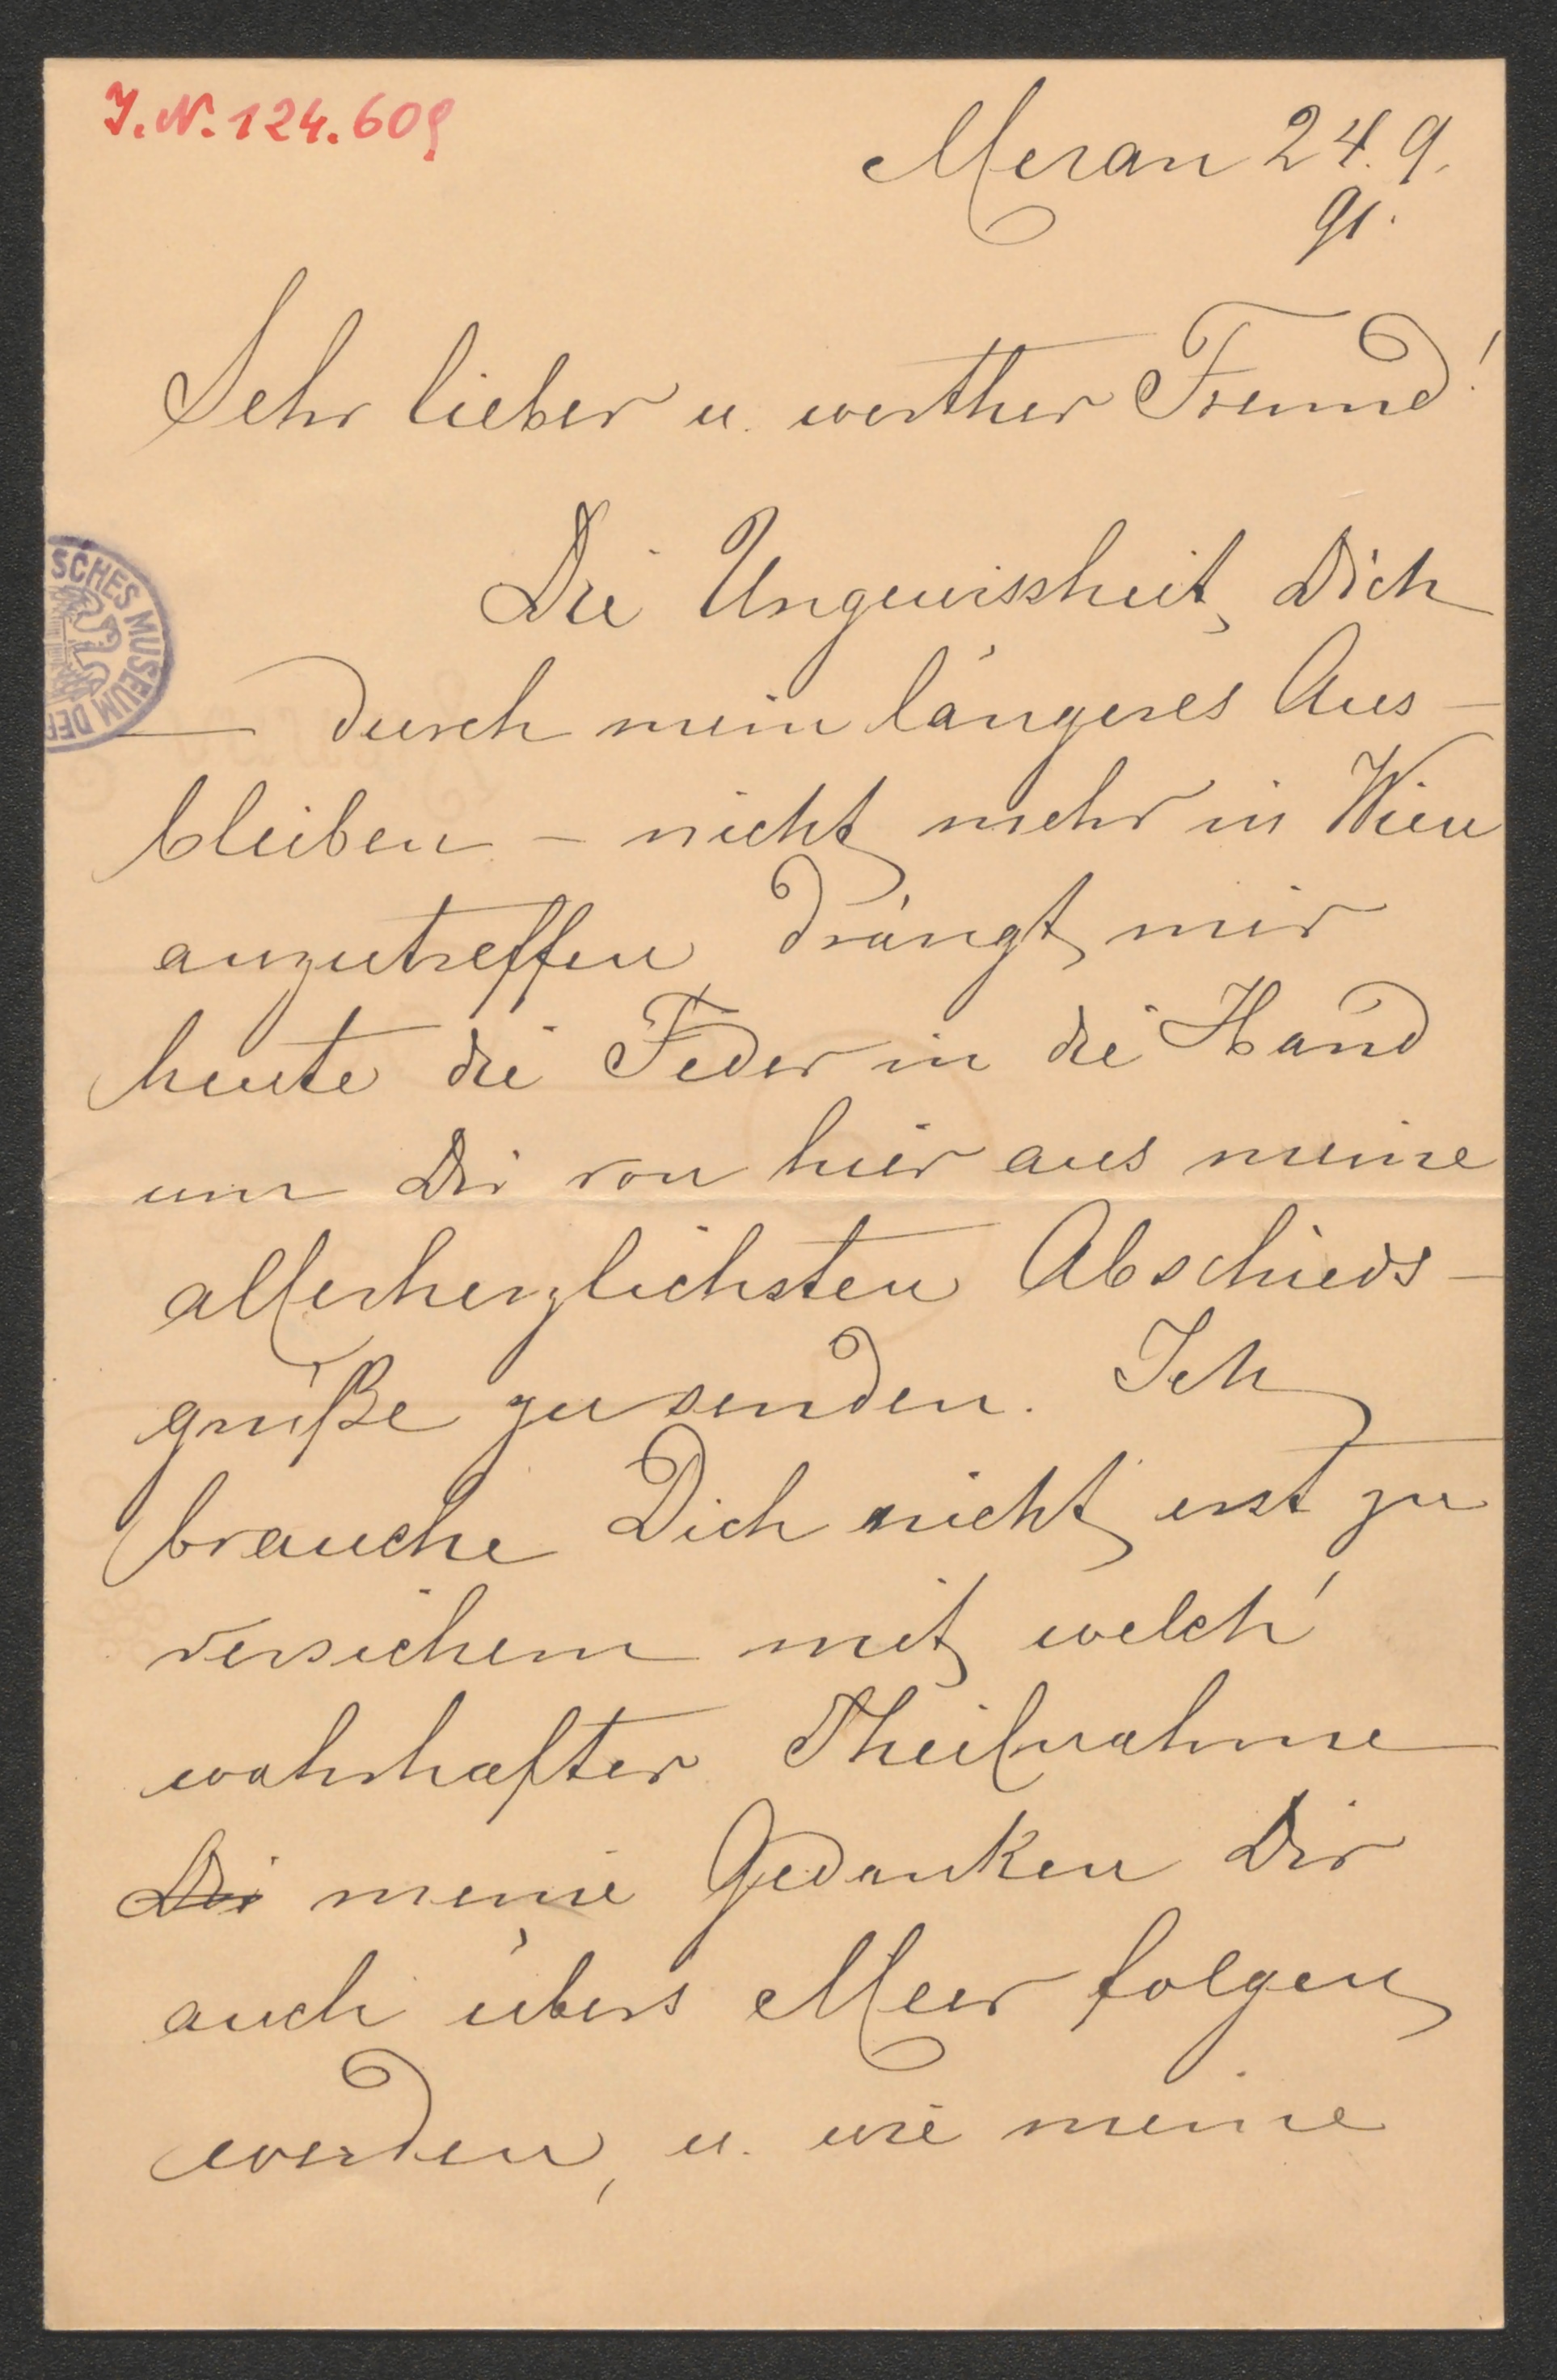 J.N. 124.609
Meran 24. 9.
91.
Sehr lieber u. werther Freund!
Die Ungewissheit, Dich
— durch mein längeres Aus-
bleiben – nicht mehr in Wien
anzutreffen drängt mir
heute die Feder in die Hand
um Dir von hier aus meine
allerherzlichsten Abschieds-
grüße zu senden. Ich
brauche Dich nicht erst zu
versichern mit welch'
wahrhafter Theilnahme
Dir meine Gedanken Dir
auch übers Meer folgen
werden, u. wie meine
SCHES MUSEUM DER